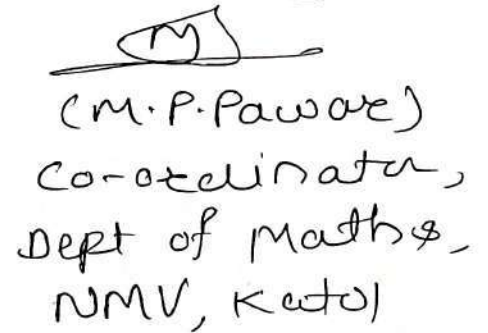 (M.P.Pawar)
Co-ordinator,
Dept of Maths,
NMV, Katol